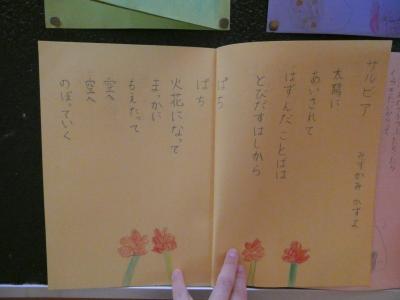 サルビア
みずかみ かずよ
太陽に
あいされて
はずんだことばは
とびだすはしから
ぱち
ぱち
火花になって
まっかに
もえたって
空へ
空へ
のぼっていく